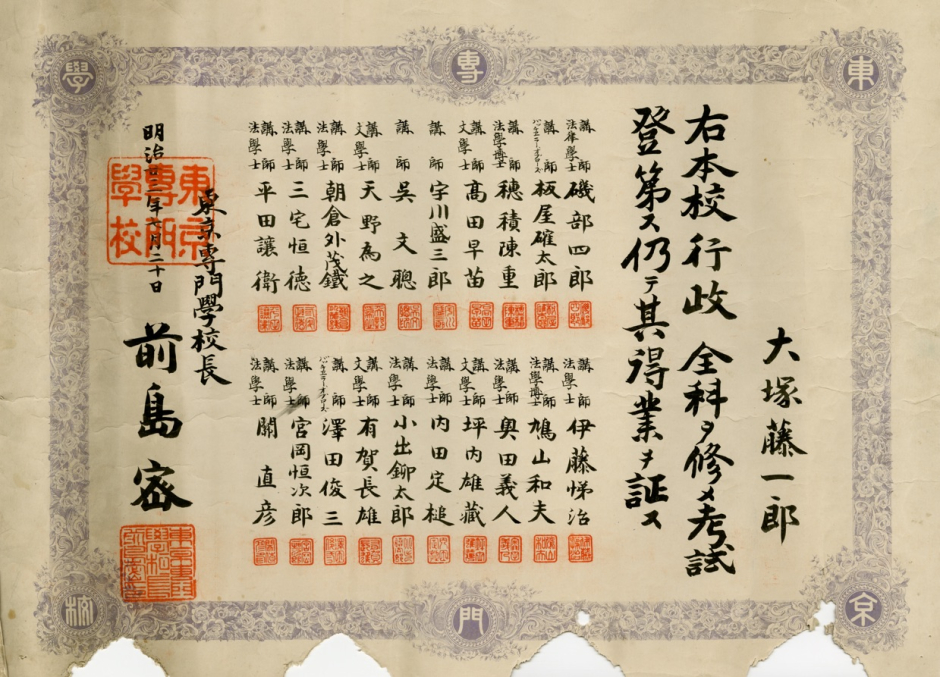 東
專
學
京
門
校
大塚藤一郎
右本校行政全科ヲ修メ考試
登第ス仍テ其得業ヲ証ス
講師 法律學士 磯部四郎
講師 板屋確太郎
講師 法學博士 穗積陳重
講師 文學士 髙田早苗
講師 宇川盛三郎
講師 呉文聰
講師 文學士 天野為之
講師 法學士 朝倉外茂鐵
講師 法學士 三宅恒徳
講師 法學士 平田讓衛
講師 法學士 伊藤悌治
講師 法學博士 鳩山和夫
講師 法學士 奥田義人
講師 文學士 坪内雄藏
講師 法學士 内田定槌
講師 法學士 小出鉚太郎
講師 文學士 有賀長雄
講師 澤田俊三
講師 法學士 宮岡恒次郎
講師 法學士 關直彦
東京專門學校長
明治 年七月二十日
前島密
東京專門學校